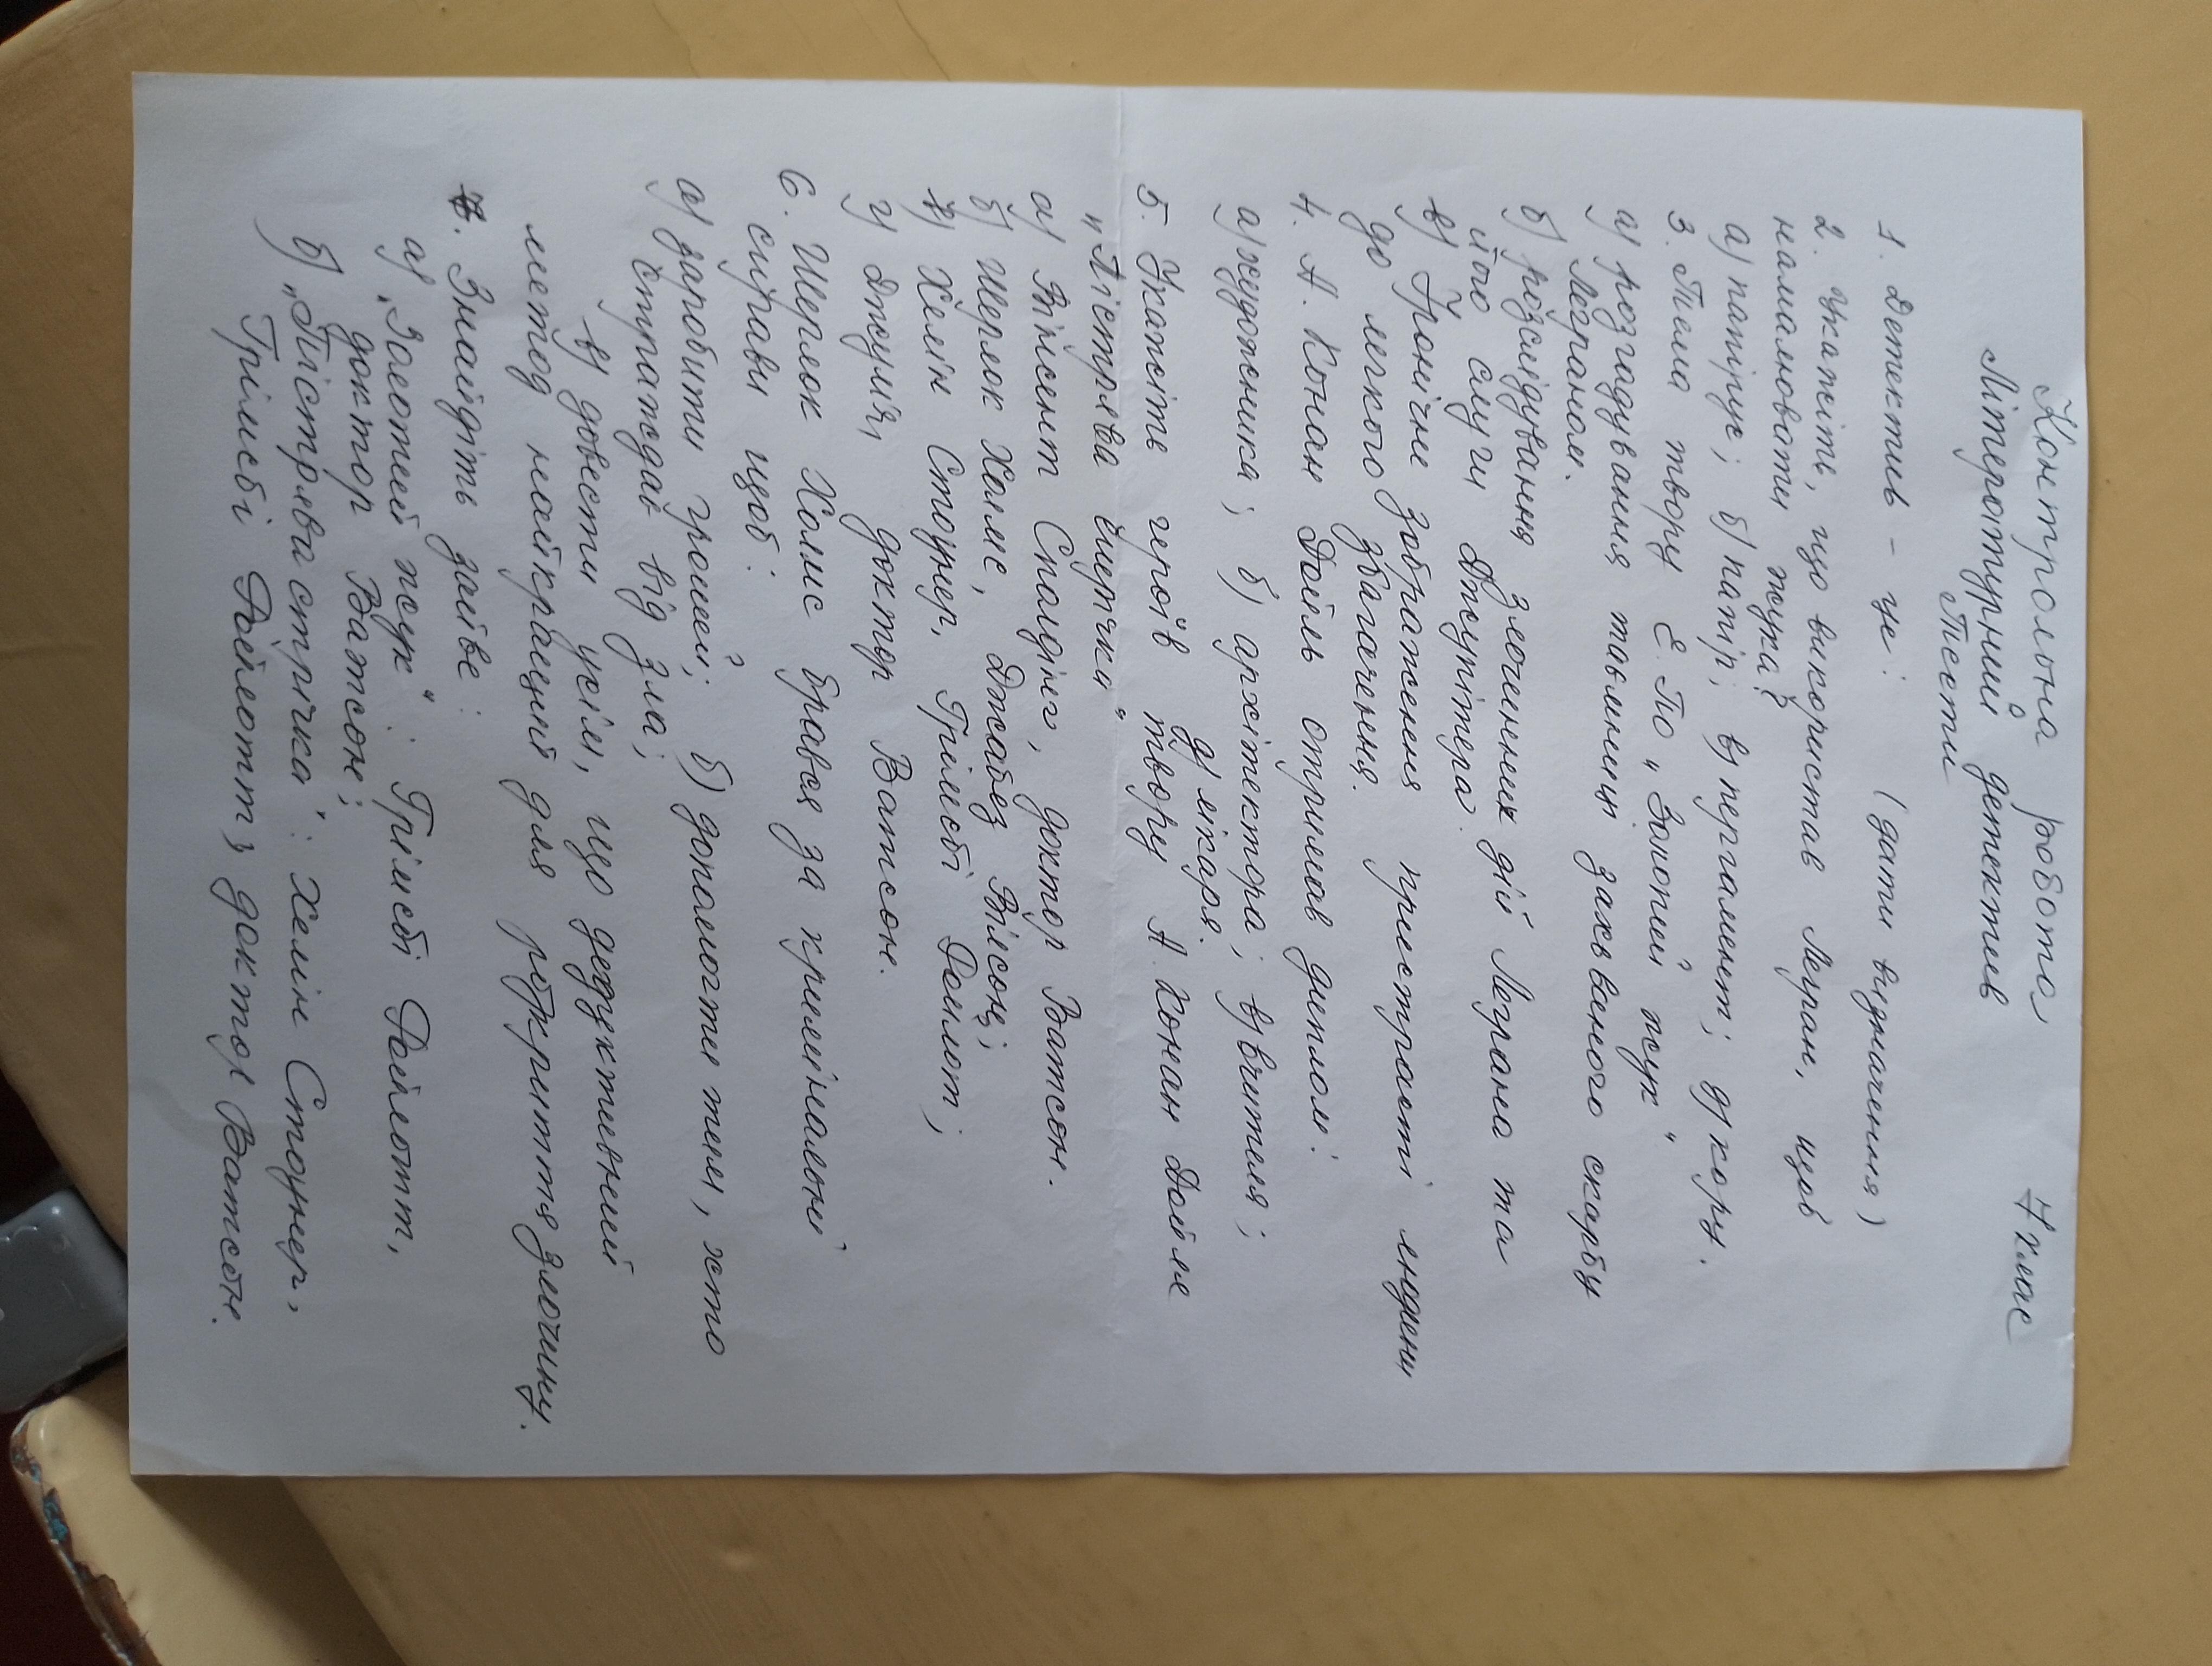 Контрольна робота 7 клас
Літературний детектив
Тести
1. Детектив – це: (дати визначення)
2. Укажіть, що використав Легран, щоб
намалювати жука?
а) папірус; б) папір; в) пергамент; д) кору.
3. Тема твору Е. По „Золотий жук"
а) розгадування таємниці захованого скарбу
Леграном.
б) розслідування злочинних дій Леграна та
його слуги Джупітера.
в) Іронічне зображення пристрасті людини
до легкого збагачення.
4. А. Конан Дойль отримав диплом:
а) художника; б) архітектора; в) вчителя;
д) лікаря.
5. Укажіть героїв твору А. Конан Дойля
„Пістрява стрічка"
а) Вінсент Сполдінг, доктор Ватсон.
б) Шерлок Холмс, Джабез Вілсон;
в) Хелін Стоунер, Грімсбі Ройлот;
г) Джулія, доктор Ватсон.
6. Шерлок Холмс брався за кримінальні
справи щоб:
а) заробити грошей; б) допомогти тим, хто
страждав від зла;
в) довести усім, що дедуктивний
метод найкращий для розкриття злочину.
7. Знайдіть зайве:
а) „Золотий жук": Грімсбі Ройлотт,
доктор Ватсон;
б) „Пістрява стрічка": Хелін Стоунер,
Грімсбі Ройлотт, доктор Ватсон.